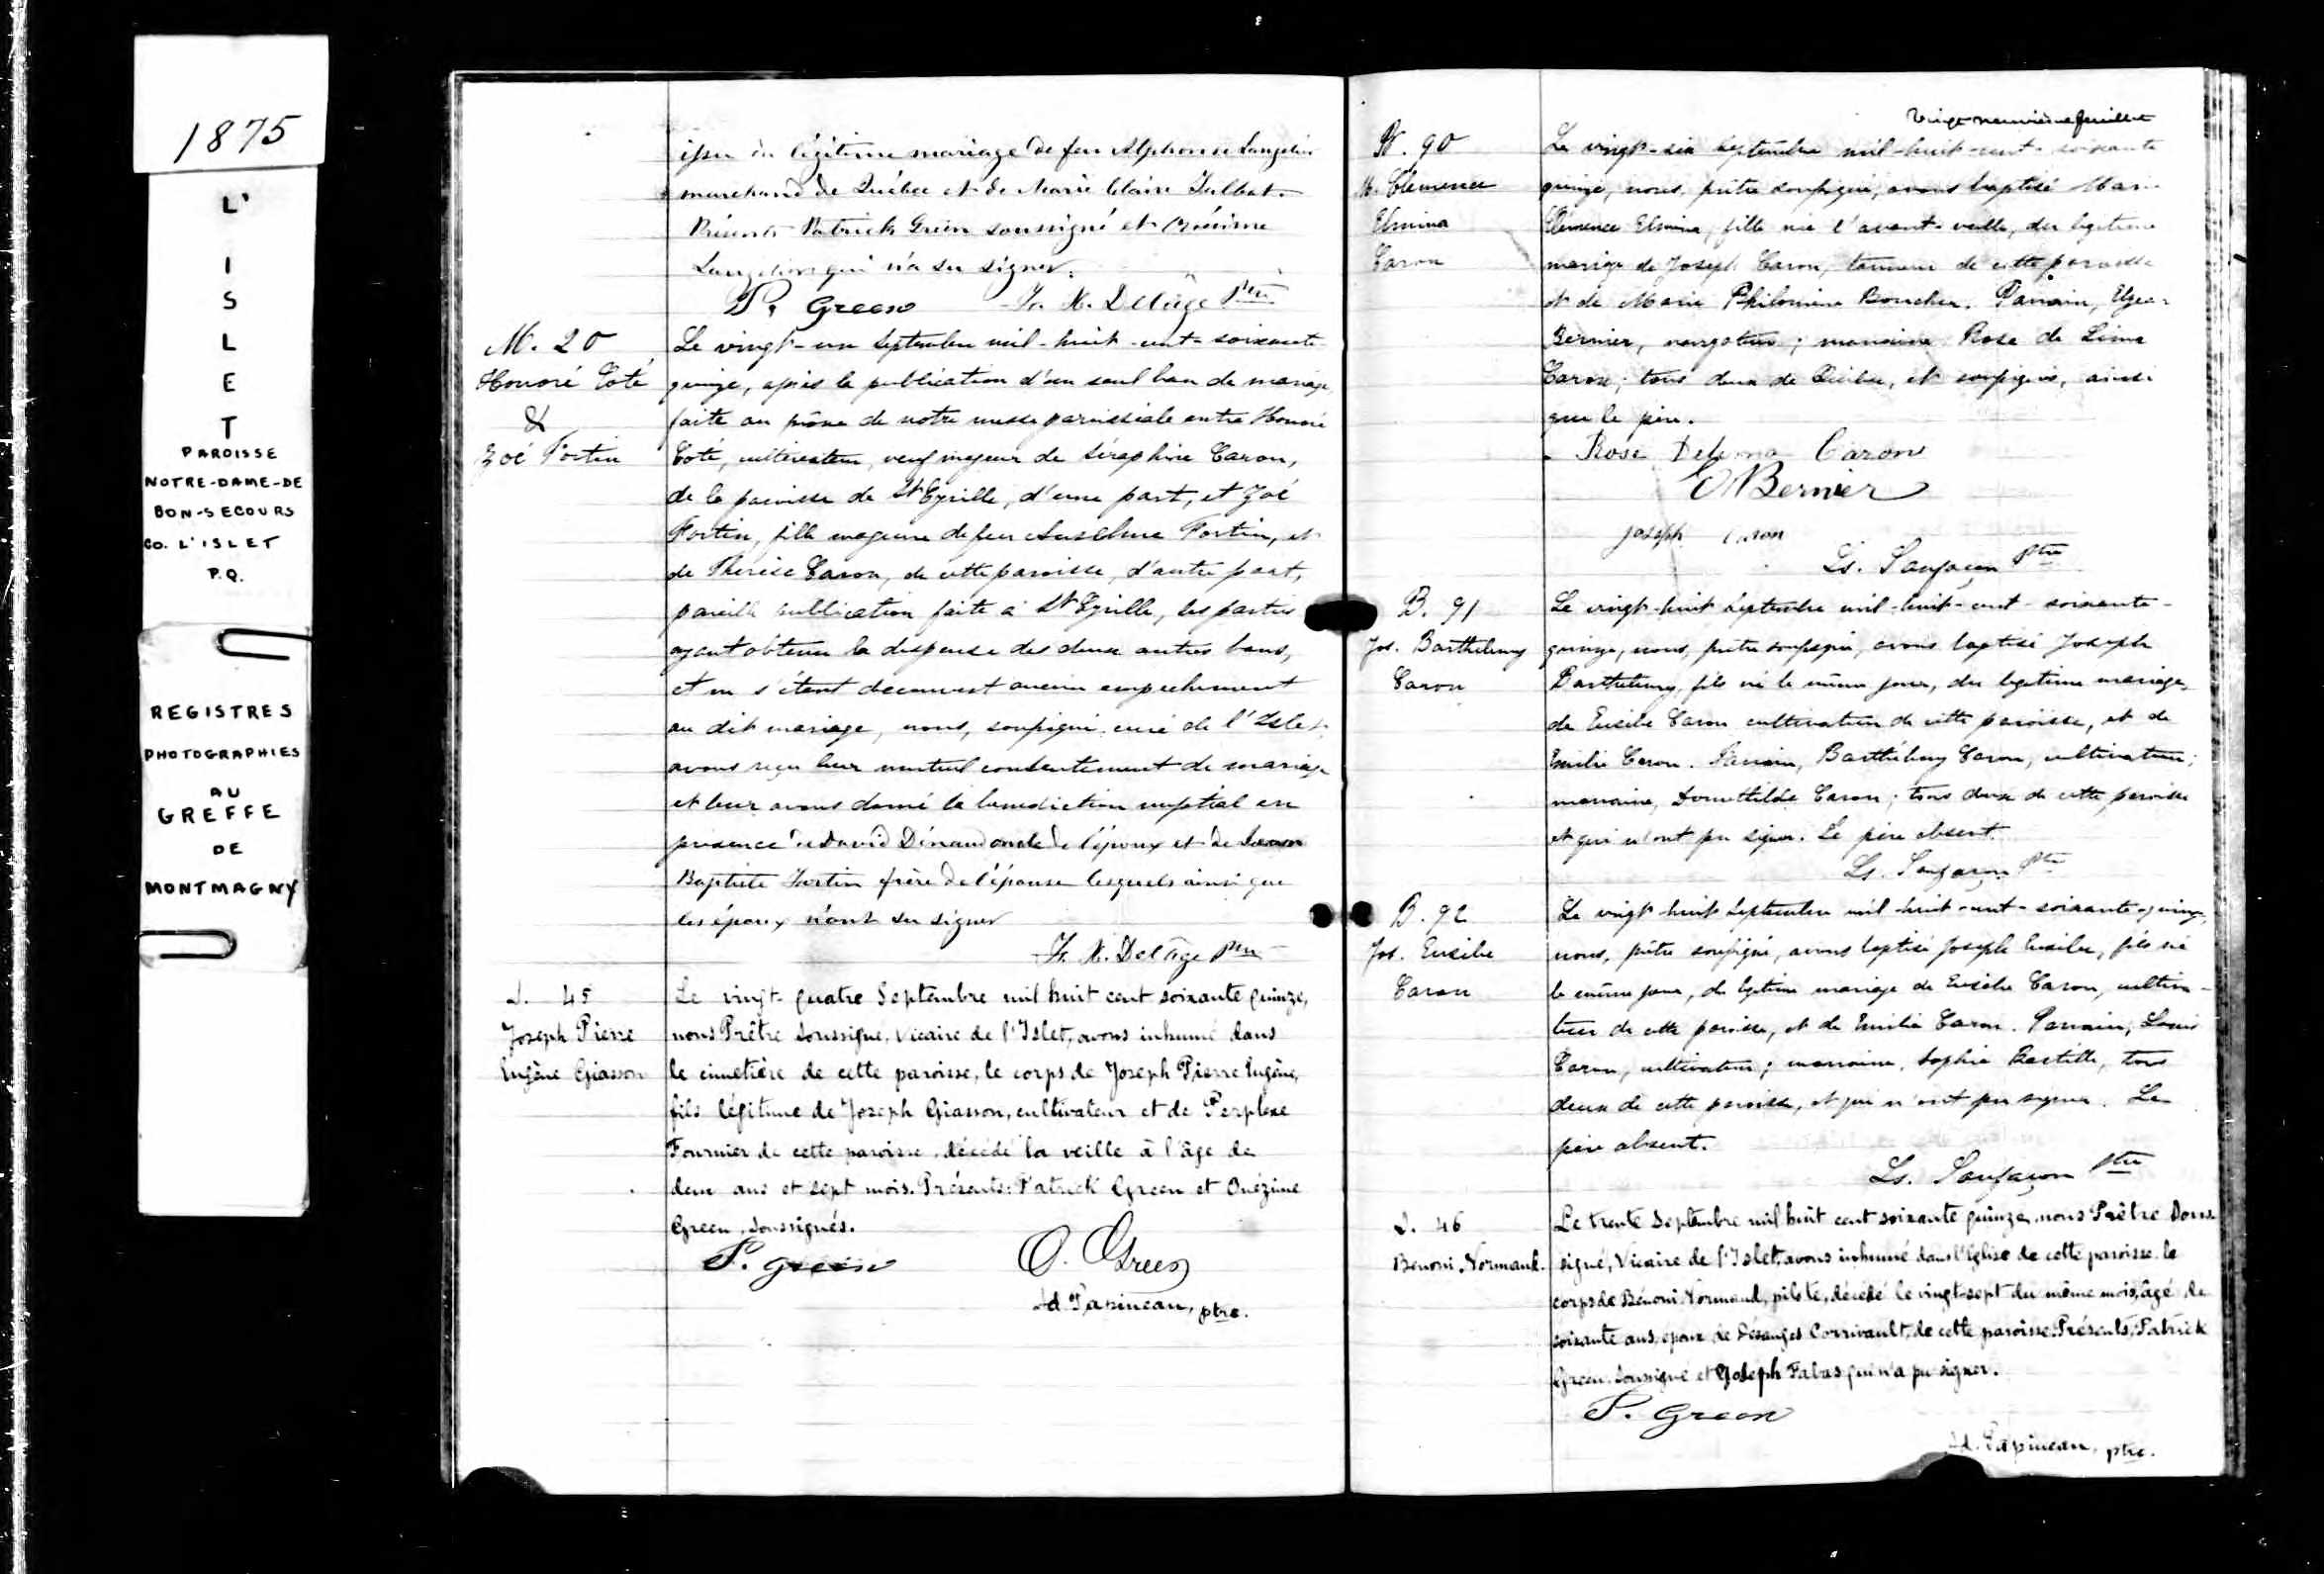 1875
L'
I
S
L
E
T
PAROISSE
NOTRE-DAME-DE
BON-SECOURS
CO. L'ISLET
P.Q.
REGISTRES
PHOTOGRAPHIES
AU
GREFFE
DE
MONTMAGNY
issu du légitime mariage de feu Alphonse Langelier
marchand de Québec et de Marie Claire
Présents Patrick Green soussigné et Onésime
qui n'a su signer.
P. Green Fr. X. Delâge Ptre
M. 20
Honoré Coté
&
Zoé Fortin
Le vingt-un Septembre mil-huit-cent-soixante
quinze, après la publication d'un seul ban de mariage
faite au prône de notre messe paroissiale entre Honoré
Coté, cultivateur, veuf majeur de Séraphine Caron,
de la paroisse de St Cyrille, d'une part, et Zoé
Fortin, fille majeure de feu Anselme Fortin, et
de Thérèse Caron, de cette paroisse, d'autre part,
pareille publication faite à St Cyrille, les parties
ayant obtenu la dispense des deux autres bans,
et ne s'étant découvert aucun empêchement
au dit mariage, nous, soussigné curé de l'Islet,
avons reçu leur mutuel consentement de mariage
et leur avons donné la bénédiction nuptial en
présence de David oncle de l'époux et de
Baptiste Fortin frère de l'épouse lesquels ainsi que
les époux n'ont su signer
Fr. X. Delâge Ptre
S. 45
Joseph Pierre
Eugène Giasson
Le vingt-quatre Septembre mil huit cent soixante quinze,
nous Prêtre soussigné, Vicaire de l'Islet, avons inhumé dans
le cimetière de cette paroisse, le corps de Joseph Pierre Eugène,
fils légitime de Joseph Giasson, cultivateur et de Perplexe
Fournier de cette paroisse, décédé la veille à l'âge de
deux ans et sept mois. Présents: Patrick Green et Onézime
Green, soussignés.
P. Green O. Green
Ad. Papineau, ptre.
Vingt neuvième feuillet
B. 90
M. Clémence
Elmina
Caron
Le vingt-six septembre mil-huit-cent-soixante
quinze, nous, prêtre soussigné, avons baptisé Marie
Clémence Elmina, fille née l'avant-veille, du légitime
mariage de Joseph Caron, tanneur de cette paroisse
et de Marie Philomène Boucher. Parrain,
Bernier, navigateur; marraine Rose de Lima
Caron; tous deux de Québec, et soussignés, ainsi
que le père.
Rose Delima Caron
Bernier
Joseph Caron
Ls. Sanfaçon Ptre
B. 91
Jos. Barthélemy
Caron
Le vingt-huit Septembre mil-huit-cent-soixante-
quinze, nous, prêtre soussigné, avons baptisé Joseph
Barthélemy, fils né le même jour, du légitime mariage,
de Eusèbe Caron cultivateur de cette paroisse, et de
Emilie Caron. Parrain, Barthélemy Caron, cultivateur;
marraine, Domithilde Caron; tous deux de cette paroisse
et qui n'ont pu signer. Le père absent.
Ls. Sanfaçon Ptre
B. 92
Jos. Eusèbe
Caron
Le vingt-huit Septembre mil-huit-cent-soixante-quinze,
nous, prêtre soussigné, avons baptisé Joseph Eusèbe, fils né
le même jour, du légitime mariage de Eusèbe Caron, cultiva-
teur de cette paroisse, et de Emilie Caron. Parrain, Louis
Caron, cultivateur; marraine, Sophie tous
deux de cette paroisse, et qui n'ont pu signer. Le
père absent.
Ls. Sanfaçon Ptre
S. 46
Benoni Normand.
Le trente Septembre mil huit cent soixante quinze, nous Prêtre sous-
signé, Vicaire de l'Islet, avons inhumé dans l'Eglise de cette paroisse, le
corps de Bénoni Normand, pilote, décédé le vingt-sept du même mois, âgé de
soixante ans, époux de Désanges Corrivault, de cette paroisse. Présents, Patrick
Green, soussigné et Joseph qui n'a pu signer.
P. Green
Ad. Papineau, ptre.